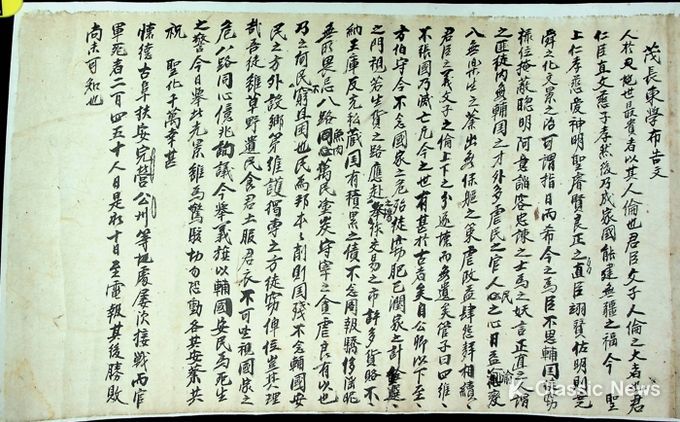 茂長東學布告文
人於天地世最貴者以其人倫也君臣父子人倫之大者君
仁臣直父慈子孝然後乃成家國能建無疆之福今聖
上仁孝慈愛神明聖睿賢良正之直臣翊贊佑明則堯
舜之化文景之治可謂指日而希今之爲臣不思輔國
祿位掩蔽聰明阿意諂容忠諫之士爲之妖言正直之人謂
之匪徒內無輔國之才外多虐民之官人民之心日益渝變
入無樂生之業出無保軀之策虐政益肆怨聲相續々
君臣之義父子之倫上下之分遂壞而無遺矣管子曰四維
不張國乃滅亡凡今之世有甚於古者矣自公卿以下至
方伯守令不念國家之危殆徒窃肥己潤家之計銓選
之門視若生貨之路應赴之場擧作交易之市許多貨賂不
納王庫反充私藏國有積累之債不念圖報驕侈淫昵
無所畏忌八路魚肉萬民塗炭守宰之貪虐良有以也
乃之何民不窮且困也民爲邦本々削則國殘不念輔國安
民之方外設鄉第維護獨專之方徒窃俸位豈其理
哉吾徒雖草野遺民食君土服君衣不可坐視國家之
危八路同心億兆詢議今舉義旗以輔國安民爲死生
之誓今日舉此光景雖爲驚駭切勿恐動各其安業共
祝聖化千萬幸甚
懷德古阜扶安完營公州等地處屢次接戰而官
軍死者二百四五十人日是夜十日至電報其後勝敗
尚未可知也
Classic News